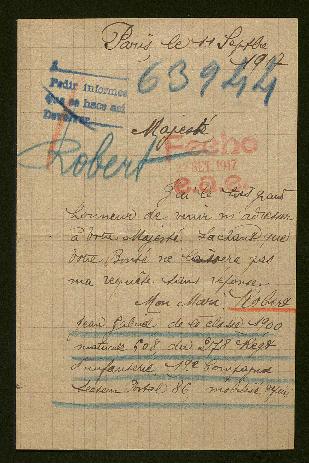 Paris le 11 Septbre
1917
63944
Pedir informes
Que se hace así
Devolver
Majesté
Fecho
SET. 1917
Robert
J'ai le très grand
honneur de venir m'adresser
à votre Majesté. Sachant que
votre Bonté ne laissera pas
ma requête sans réponse.
Mon Mari Robert
Jean Gabriel de la classe 1900
matricule 608 du 278 Regt
d'infanterie 19e Compagnie
secteur Postal 86